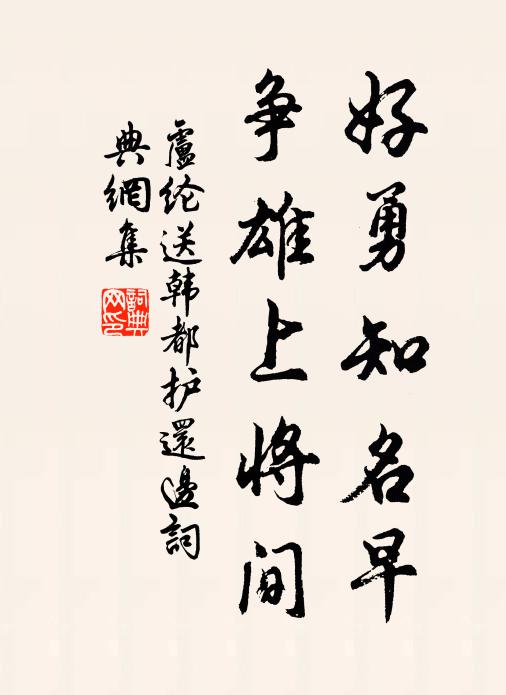 好勇知名早
争雄上将间
盧纶送韩都护還邊詞
典網集
詞典
网印